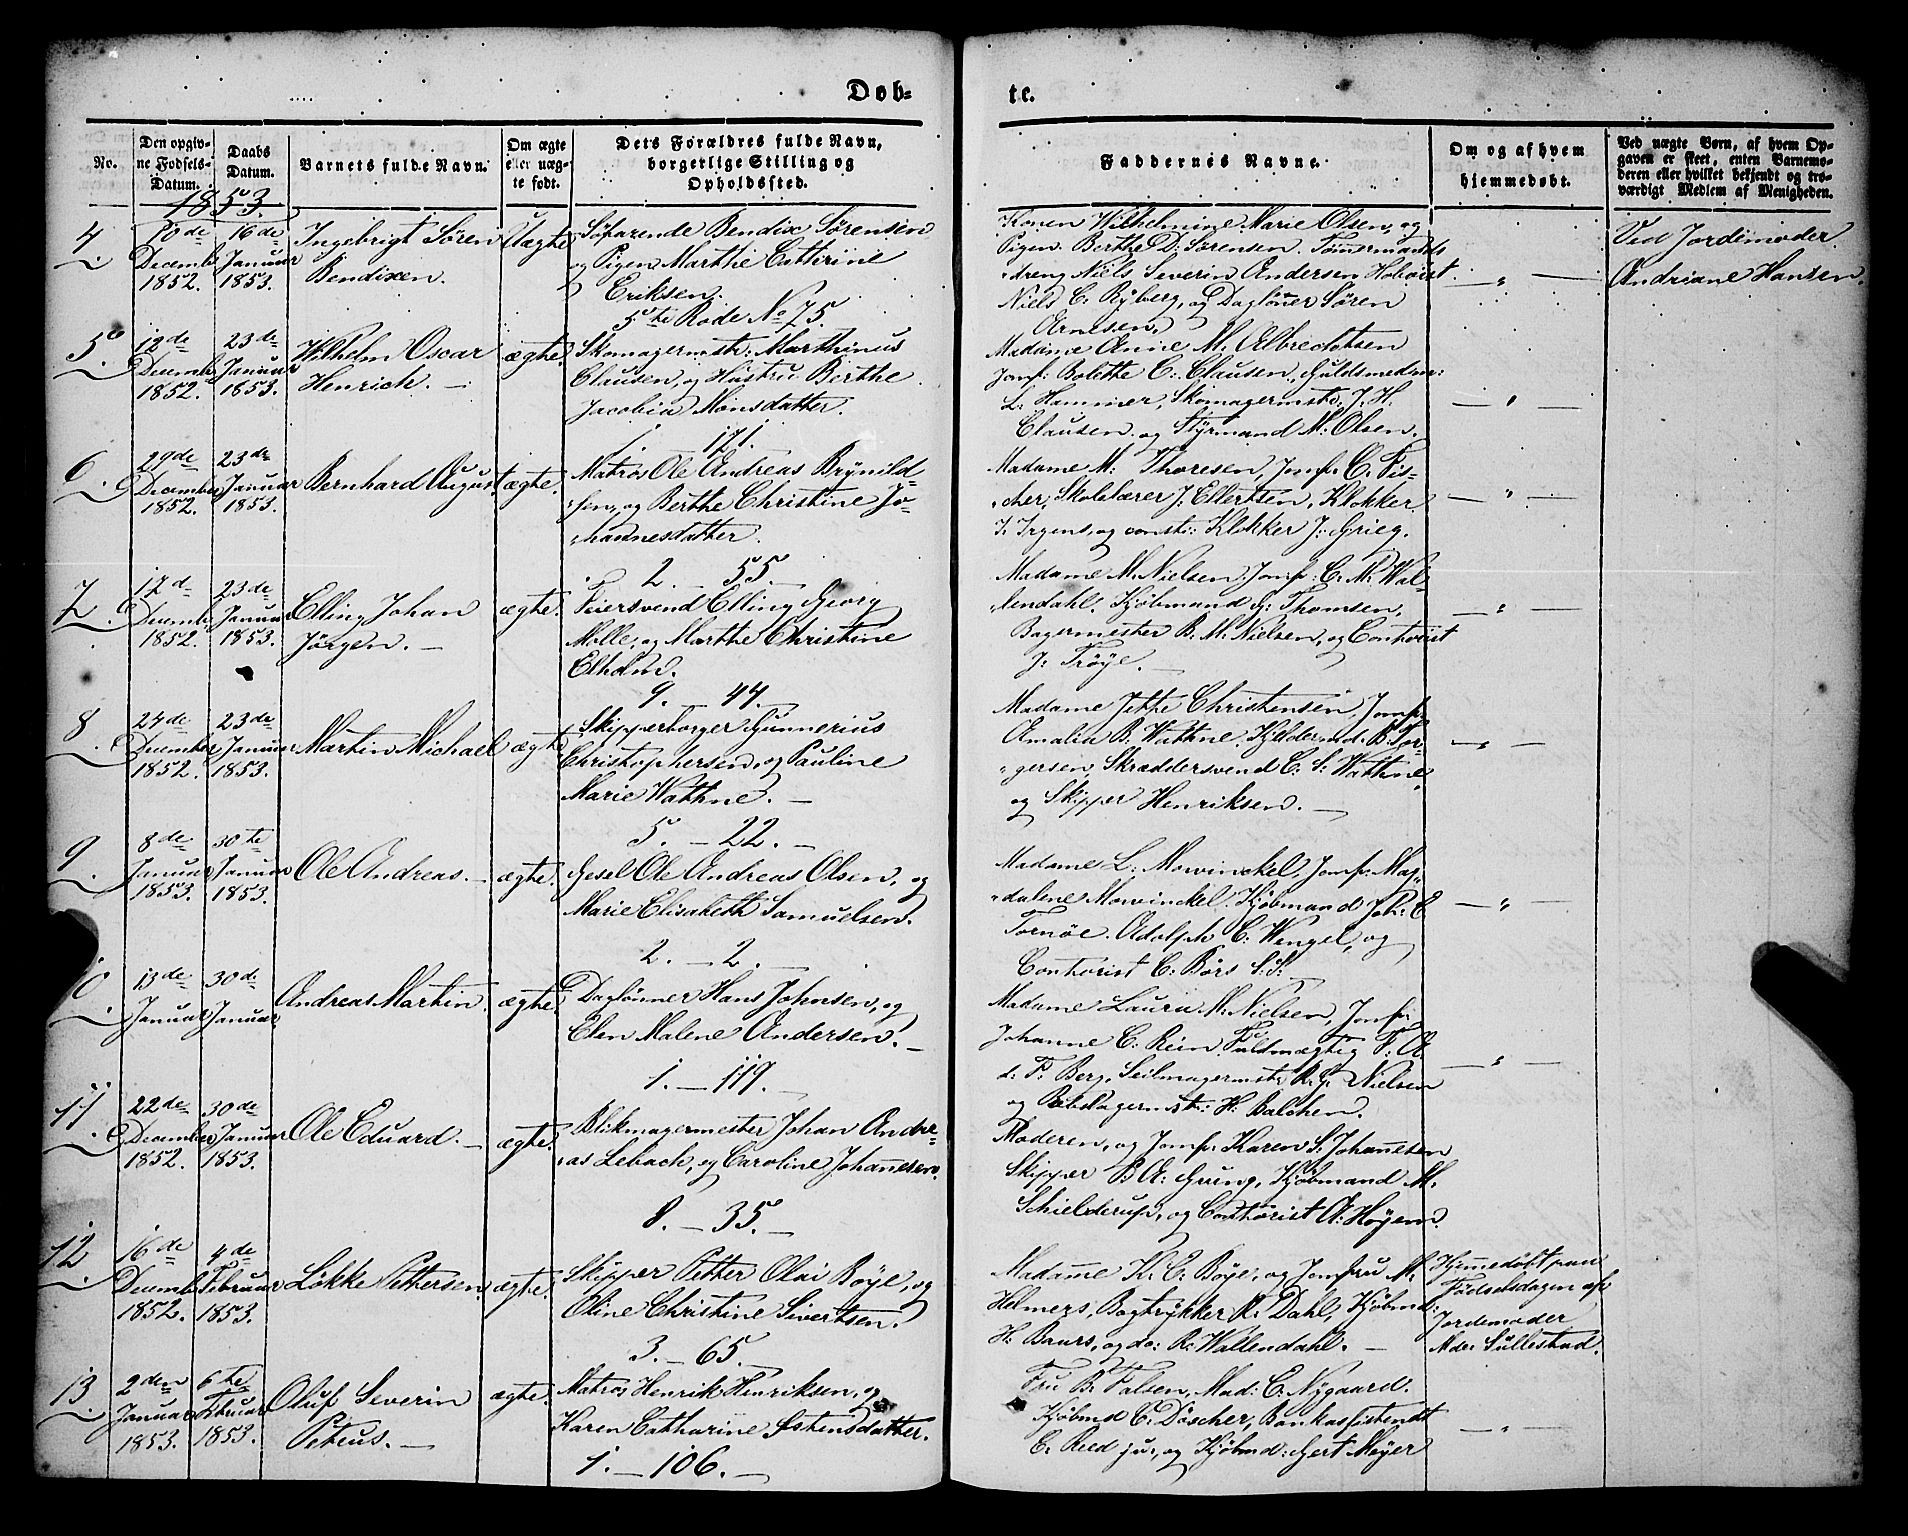 Døb-
te.
No.
Den opgiv-
ne Fødsels-
Datum.
Daabs
Datum.
Barnets fulde Navn.
Om ægte
eller uæg-
te født.
Dets Forældres fulde Navn,
borgerlige Stilling og
Opholdssted.
Faddernes Navne.
Om og af hvem
hjemmedøbt.
Ved uægte Børn, af hvem Op-
gaven er skeet, enten Barnemo-
deren eller hvilket bekjendt og tro-
værdigt Medlem af Menigheden.
1853.
4.
10de
Decembr
1852.
16de
Januar
1853.
Ingebrigt Sören
Bendixen.
Uægte
Söfarende Bendix Sørensen
og Pigen Marthe Cathrine
Eriksen.
5te Rode No 75.
Konen Wilhelmine Marie Olsen, og
Pigen Berthe D: Sørensen. Tömermands
dreng Niels Severin Andersen Hoboist
Niels C. Ryberg, og Daglöner Søren
Arnesen.
— " —
Ved Jordemoder
Andriane Hansen.
5.
12de
Decemb.
1852.
23de
Januar
1853.
Wilhelm Oscar
Henrich. —
ægte.
Skomagermstr: Marthinus
Clausen, og Hustru Berthe
Jacobia Monsdatter.
1. 171.
Madame Anne M. Albrechtsen
Jomf: Bolette C: Clausen, Guldsmedm:
L. Hammer, Skomagermstr: J. H.
Clausen og Styrmand M: Olsen.
— " —
6.
29de
December
1852.
23de
Januar
1853.
Bernhard August
ægte.
Matros Ole Andreas Brynild-
sen, og Berthe Christine Jo-
hannesdatter.
2. — 55. —
Madame M: Thoresen, Jomfr C. Fis-
cher, Skolelærer J: Ellertsen, Klokker
I. Irgens, og const: Klokker J: Grieg.
— " —
7.
17d
Decemb.
1852.
23de
Januar
1853.
Elling Johan
Jörgen. —
ægte.
Feiersvend Elling Georg
Mille, og Marthe Christine
Elholm.
9. — 44. —
Madame M. Nielsen. Jomfr: C. M. Wal-
lendahl, Kjöbmand G: Thomsen,
Bagermester B. M. Nielsen, og Contorist
J: Tröye. —
— " —
8.
24de
December
1852.
23de
Januar
1853.
Martin Michael
ægte
Skipperborger Gunnerius
Christophersen, og Pauline
Marie Wathne. —
5. — 22. —
Madame Jette Christensen, Jomfr
Amalia B. Wathne, Kjeldermd: B. Tor-
gersen, Skræddersvend C. S: Wathne
og Skipper Henriksen. —
— " —
9.
8de
Januar
1853.
30te
Januar
1853.
Ole Andreas. —
ægte.
Gesel Ole Andreas Olsen, og
Marie Elisabeth Samuelsen.
2. — 2. —
Madame L: Mowinckel, Jomfr: Mag-
dalene Mowinckel. Kjöbmand Joh: E
Tornöe. Adolph C. Wengel, og
Contorist C. Börs S.S. —
— " —
10.
13de
Januar
30d.
Januar
Andreas Martin.
ægte.
Daglönner Hans Johnsen, og
Elen Malene Andersen. —
1. — 119. —
Madame Laura M. Nielsen, Jomfr:
Johanne C. Reim, Fuldmægtig F. A
d: F. Berg, Seilmagermstr: R. G. Nielsen
og Rebslagermstr: H. Balchen.
— " —
11.
22de
December
1852.
30de
Januar
1853.
Ole Eduard. —
ægte.
Blikmagermester Johan Andre-
as Lebach, og Caroline Johannesen.
8. — 35. —
Moderen, og Jomfr. Karen S. Johannesen
Skipper B. A: Gring, Kjöbmand M.
Schielderup, og Contorist A: Höyem.
12.
16de
Decemb.
1852.
4de
Februar
1853.
Lökke Pettersen
ægte.
Skipper Petter Olai Röye, og
Oline Christine Sivertsen.
3. — 65. —
Madame K. C. Böye, og Jomfru M.
Helmers, Bogtrykker R. Dahl, Kjöbmd.
H. Baars, og do: R. Wallendahl. —
Hjemedöbt paa
Födselsdagen af
Jordemoder
Mde: Süllestad.
13.
2den
Januar
1853.
6te
Februar
1853.
Oluf Severin
Peteus. —
ægte.
Matros Henrik Henriksen, og
Karen Catharine Østensdatter.
1. — 106. —
Fru B. Falsen, Mad: C. Nygaard.
Kjöbmd C. Döscher, Bankassistendt
C. Reed jur, og Kjöbmd: Gert Meyer
— " —